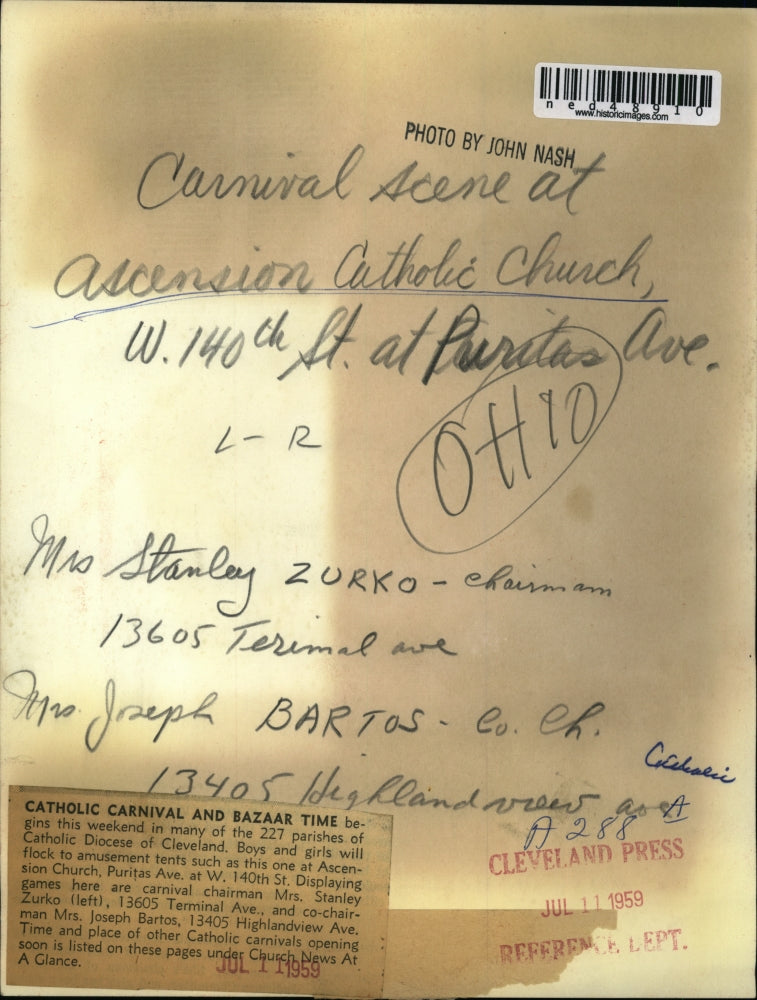 ned48910
www.historicimages.com
PHOTO BY JOHN NASH
Carnival scene at
Ascension Catholic Church,
W. 140th St. at Puritas Ave.
OHIO
L - R
Mrs Stanley ZURKO - Chairmam
13605 Terimal ave
Mrs. Joseph BARTOS - Co. Ch.
13405 Highland view ave
Catholic
A
A 288
CLEVELAND PRESS
JUL 11 1959
REFERENCE DEPT.
CATHOLIC CARNIVAL AND BAZAAR TIME be-
gins this weekend in many of the 227 parishes of
Catholic Diocese of Cleveland. Boys and girls will
flock to amusement tents such as this one at Ascen-
sion Church, Puritas Ave. at W. 140th St. Displaying
games here are carnival chairman Mrs. Stanley
Zurko (left), 13605 Terminal Ave., and co-chair-
man Mrs. Joseph Bartos, 13405 Highlandview Ave.
Time and place of other Catholic carnivals opening
soon is listed on these pages under Church News At
A Glance.
JUL 11 1959